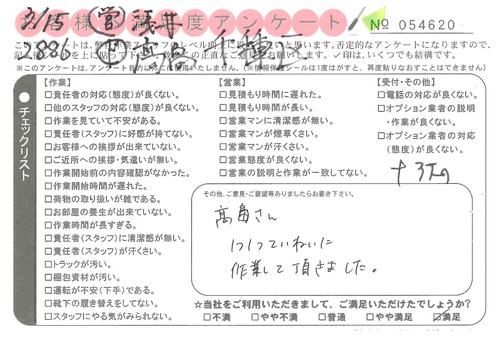 お客様満足度アンケート
№ 054620
2/15 ㊂ 浅井
2886
※このアンケートは、アンケート目的以外には使用いたしません。(※情報保護シールは1度がすと、再度貼りなおすことはできません)
●チェックリスト
【作業】
□責任者の対応(態度)が良くない。
□他のスタッフの対応(態度)が良くない。
□作業を見ていて不安がある。
□責任者(スタッフ)に好感が持てない。
□お客様への挨拶が出来ていない。
□ご近所への挨拶・気遣いが無い。
□作業開始前の内容確認がなかった。
□作業開始時間が遅れた。
□荷物の取り扱いが雑である。
□お部屋の養生が出来ていない。
□作業時間が長すぎる。
□責任者(スタッフ)に清潔感が無い。
□責任者(スタッフ)が汗くさい。
□トラックが汚い。
□梱包資材が汚い。
□運転が不安(下手)である。
□靴下の履き替えをしてない。
□スタッフにやる気がみられない。
【営業】
□見積もり時間に遅れた。
□見積もり時間が長い。
□営業マンに清潔感が無い。
□営業マンが煙草くさい。
□営業マンが汗くさい。
□営業態度が良くない。
□営業の説明と作業が一致してない。
【受付・その他】
□電話の対応が良くない。
□オプション業者の説明
・作業が良くない。
□オプション業者の対応
(態度)が良くない。
その他、ご意見・ご要望等ありましたらお書き下さい。
高畠さん
1つ1つていねいに
作業して頂きました。
☆当社をご利用いただきまして、ご満足いただけでしょうか?
□不満 □やや不満 □普通 □やや満足 ☑満足